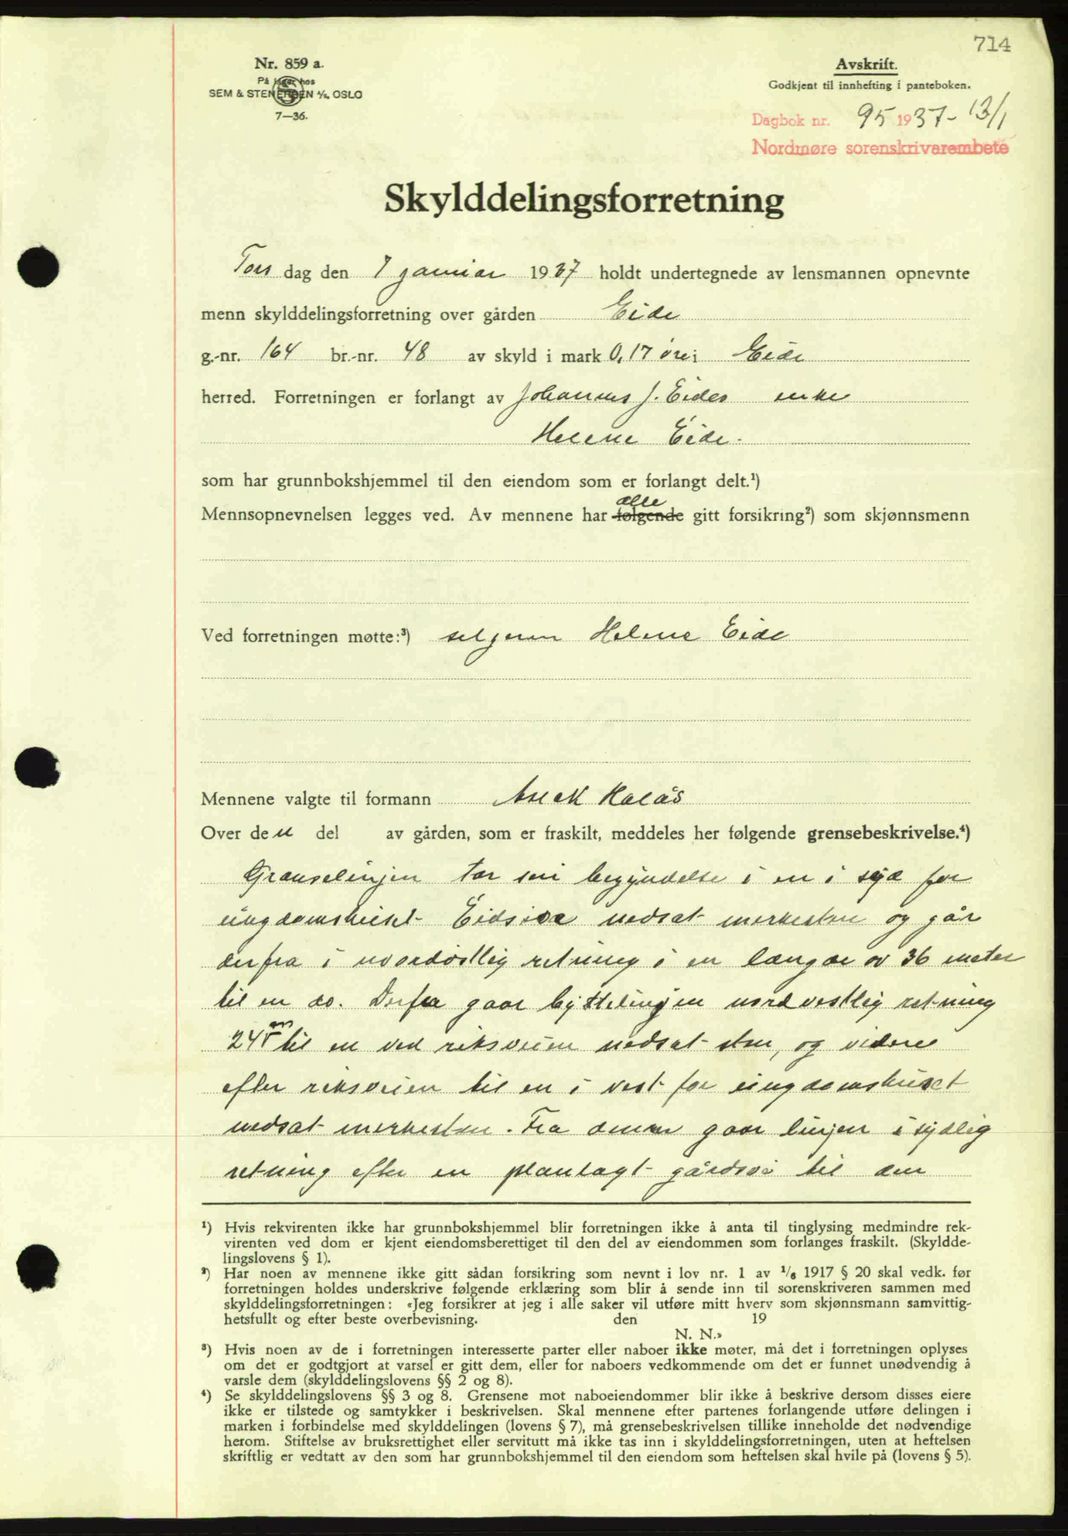 714
Nr. 859 a.
På lager hos
SEM & STENERSEN A/S, OSLO
7—36.
Avskrift.
Godkjent til innhefting i panteboken.
Dagbok nr. 95 1937- 13/1
Nordmøre sorenskriverembete
Skylddelingsforretning
Tors dag den 7 januar 1937 holdt undertegnede av lensmannen opnevnte
menn skylddelingsforretning over gården Eide
g.-nr. 164 br.-nr. 48 av skyld i mark 0,17 øre i Eide
herred. Forretningen er forlangt av Johannes J. Eides enke
Helene Eide.
som har grunnbokshjemmel til den eiendom som er forlangt delt.¹)
Mennsopnevnelsen legges ved. Av mennene har følgende alle gitt forsikring²) som skjønnsmenn
Ved forretningen møtte:³) selgeren Helene Eide
Mennene valgte til formann Aslak Halås
Over den del av gården, som er fraskilt, meddeles her følgende grensebeskrivelse.⁴)
Grænselinjen tar sin begyndelse i en i syd for
ungdomshuset Eidsiva nedsat merkesten og går
derfra i nordøstlig retning i en længde av 36 meter
til en do. Derfra gaar byttelinjen nordvestlig retning
24 m til en ved riksveien nedsat sten, og videre
efter riksveien til en i vest for ungdomshuset
nedsat merkesten. Fra denne gaar linjen i sydlig
retning efter en planlagt gårdsvei til den
¹) Hvis rekvirenten ikke har grunnbokshjemmel blir forretningen ikke å anta til tinglysing medmindre rek-
virenten ved dom er kjent eiendomsberettiget til den del av eiendommen som forlanges fraskilt. (Skyldde-
lingslovens § 1).
²) Har noen av mennene ikke gitt sådan forsikring som nevnt i lov nr. 1 av 1/6 1917 § 20 skal vedk. før
forretningen holdes underskrive følgende erklæring som blir å sende inn til sorenskriveren sammen med
skylddelingsforretningen: «Jeg forsikrer at jeg i alle saker vil utføre mitt hverv som skjønnsmann samvittig-
hetsfullt og efter beste overbevisning. den 19
N. N.»
³) Hvis noen av de i forretningen interesserte parter eller naboer ikke møter, må det i forretningen oplyses
om det er godtgjort at varsel er gitt dem, eller for naboers vedkommende om det er funnet unødvendig å
varsle dem (skylddelingslovens §§ 2 og 8).
⁴) Se skylddelingslovens §§ 3 og 8. Grensene mot naboeiendommer blir ikke å beskrive dersom disses eiere
ikke er tilstede og samtykker i beskrivelsen. Skal mennene efter partenes forlangende utføre delingen i
marken i forbindelse med skylddelingen (lovens § 7), må grensebeskrivelsen tillike inneholde det nødvendige
herom. Stiftelse av bruksrettighet eller servitutt må ikke tas inn i skylddelingsforretningen, uten at heftelsen
skriftlig er vedtatt av den som har grunnbokshjemmel til den eiendom som heftelsen skal hvile på (lovens § 5).